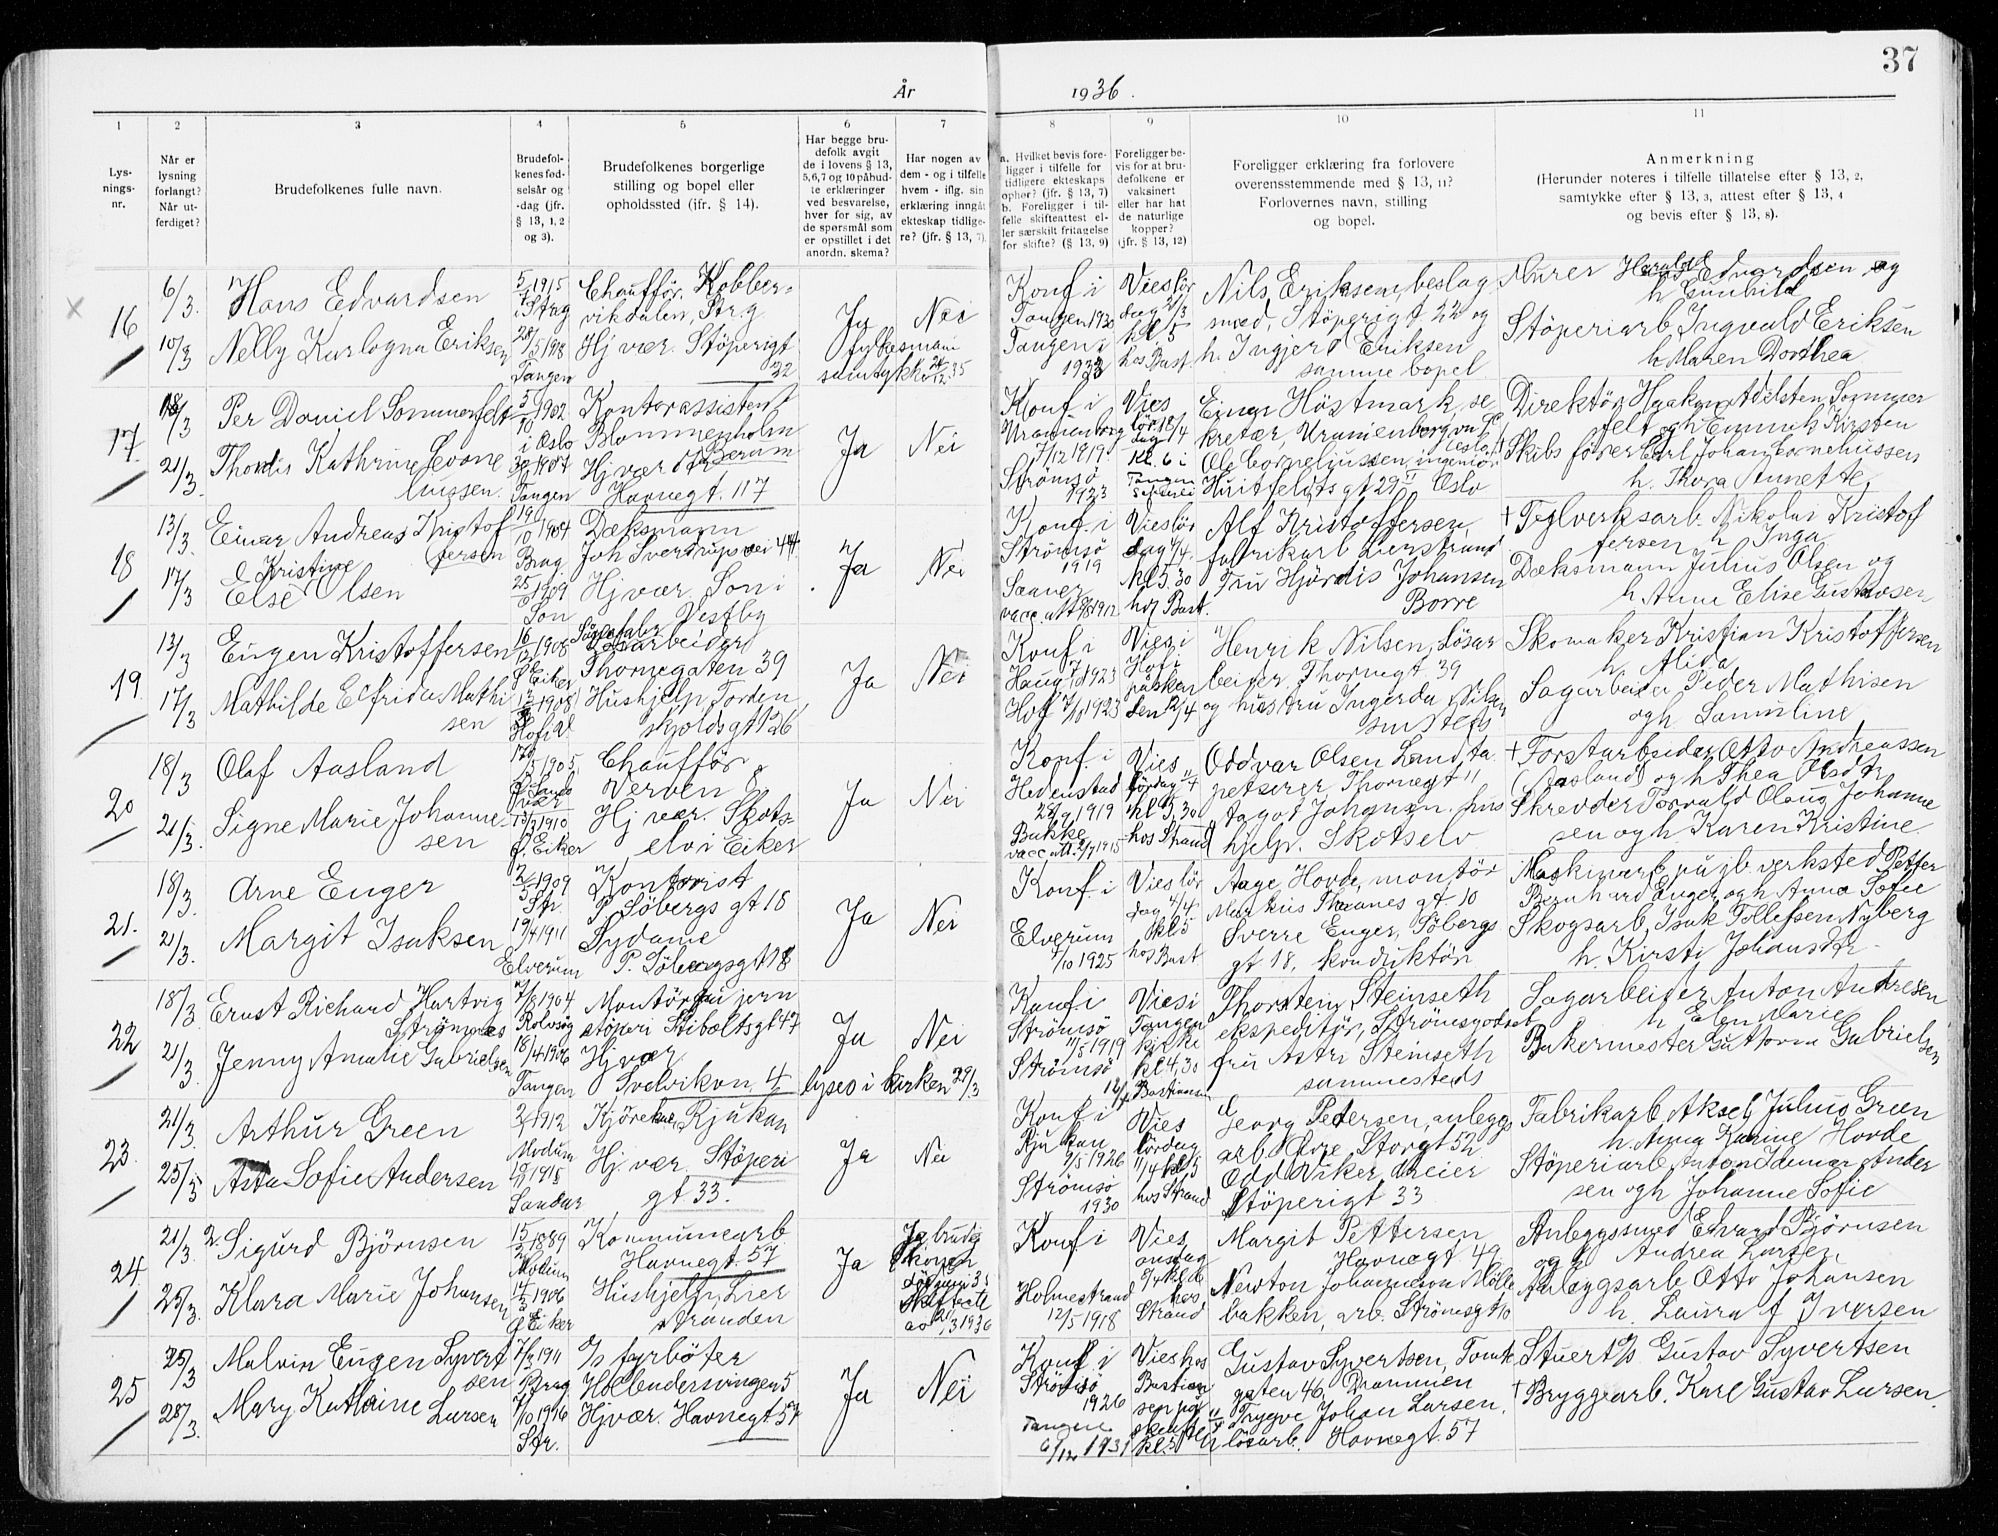 37
År 1936.
1 2 3 4 5 6 7 8 9 10 11
Lys-
nings-
nr.
Når er
lysning
forlangt?
Når ut-
ferdiget?
Brudefolkenes fulle navn.
Brudefol-
kenes fød-
selsår og
-dag (jfr.
§ 13, 1, 2
og 3).
Brudefolkenes borgerlige
stilling og bopel eller
opholdssted (ifr. § 14).
Har begge bru-
defolk avgit
de i lovens § 13,
5, 6, 7 og 10 påbud-
te erklæringer
ved besvarelse,
hver for sig, av
de spørsmål som
er opstillet i det
anordn. skema?
Har nogen av
dem - og i tilfelle
hvem - iflg. sin
erklæring inngåt
ekteskap tidlige-
re? (jfr. § 13, 7).
a. Hvilket bevis fore-
ligger i tilfelle for
tidligere ekteskaps
ophør? (jfr. § 13, 7)
b. Foreligger i til-
felle skifteattest el-
ler særskilt fritagelse
for skifte? (§ 13, 9)
Foreligger be-
vis for at bru-
defolkene er
vaksinert
eller har hat
de naturlige
kopper?
(jfr. § 13, 12)
Foreligger erklæring fra forlovere
overensstemmende med § 13, 11?
Forlovernes navn, stilling
og bopel.
Anmerkning
(Herunder noteres i tilfelle tillatelse efter § 13, 2,
samtykke efter § 13, 3, attest efter § 13, 4
og bevis efter § 13, 8).
16
6/3
10/3
Hans Edvardsen
Nelly Karlogna Eriksen
5/7 1915
i Strg
28/5 1918
Tangen
Chauffør. Kobber-
vikdalen, Strg
Hj vær. Støperigt
22
Ja
Nei
fylkesmann
samtykke 21/12 35
Konf i
Tangen 1930
Tangen i
1933
Vies lør
dag 21/3
kl. 5
hos Bast.
Nils Eriksen, beslag
smed, Støperigt 22 og
h. Ingjerd Eriksen
samme bopel
Murer Harald Edvardsen og
h Gunhild
Støperiarb. Ingvald Eriksen
h. Maren Dorthea
17
18/3
21/3
Per Daniel Sommerfelt
Thordis Kathrine Corne
liussen.
5/10 1902
i Oslo
1907
Tangen
Kontorassistent
Blommenholm
Bærum
Hj vær
Havnegt. 117
Ja
Nei
Konf. i
Uranienborg
7/12 1919
Strømsø
1923
Vies
lør 18/4
dag
kl. 6 i
Tangen
Einar Høstmark, se-
kretær, Uranienborg
Oslo
Ole Corneliussen ingeniør
Huitfeldts gt 29 Oslo
Direktør Haakon Adelsten Sommer
felt og h Emmik Kirsten
Skibsfører Carl Johan Corneliussen
h. Thora Annette
18
13/3
17/3
Einar Andreas Kristof
fersen
Kristine
Else Olsen
19/10 1904
Brag.
25/6 1909
Son
Dæksmann
Joh Sverdrups vei 44
Hj vær. Son i
Vestby
Ja
Nei
Konf. i
Strømsø
1919
Saaner
vacc. att 1912
Vies lør
dag 4/4
kl 5.30
hos Bast.
Alf Kristoffersen,
fabrikarb Lierstrand
Fru Hjørdis Johansen
Borre
† Teglverksarb. Nikolai Kristof
fersen h Inga
Dæksmann Julius Olsen og
h. Anne Elise Gustavsen
19.
13/3
17/3
Eugen Kristoffersen
Mathilde Elfrida Mathi
sen
16/12 1908
Ø. Eiker
13/3 1908
Hof
Løsarbeider
Thornegaten 39
Hushjelp, Torden
skjoldsgt 126
Ja
Nei
Konf i
Haug 7/8 1923
Hof 7/10 1923
Vies i
Hof i
påsken
den 12/4
Henrik Nilsen, Løsar
beider, Thornegt 39
og hustru Ingerda Nilsen
sammesteds
Skomaker Kristian Kristoffersen
h. Alida
Sagarbeider Peder Mathisen
og h Samuline
20
18/3
21/3.
Olaf Aasland
Signe Marie Johanne-
sen
1905
13/3 1910
Ø. Eiker
Chauffør
Verven 8
Hj vær. Skots-
elv i Eiker
Ja
Nei
Konf. i
Hedenstad
28/9 1919
Bakke
vacc. att. 2/7 1915
Vies
lørdag 11/4
kl 5,30
hos Strand
Oddvar Olsen Landta
petserer Thornegt 11
Aagot Johansen. hus
hjelp. Skotselv
† Forstarbeider Otto Andreassen
(Aasland) og h Thea Olsdtr
Skredder Torvald Olaug Johanne
sen og h. Karen Kristine
21.
18/3.
21/3.
Arne Enger
Margit Isaksen
2/5 1909
Str.
19/4 1911
Elverum
Kontorist
P. Søbergs gt 18
Sydame
P. Søbergsgt 18
Ja
Nei
Konf. i
Elverum
1/10 1925
Vies lør
dag 4/4
kl 5
hos Bast
Aage Hovde, montør
Markus Thranes gt. 10
Sverre Enger, Søbergs
gt 18, konduktør
Maskinarb. på jb. verksted Petter
Bernhard Enger og h Anna Sofie
Skogsarb. Isak Tollefsen Nyberg
h. Kirsti Johansdtr.
22
18/3
21/3.
Ernst Richard Hartvig
Strømnæs
Jenny Amalie Gabrielsen
7/8 1904
Rolvsøy
18/4 1906
Tangen
Montør ju jern
støperi Stiboltsgt 47
Hj vær
Svelvikvn. 4
Ja
Nei
lyses i kirken 29/3
Konf i
Strømsø
11/5 1919
Strømsø
Vies i
Tangen
kirke
kl 4,30
12/4 Bastiansen
Thorstein Steinseth
ekspeditør, Strømsgodset
fru Astri Steinseth
sammesteds
Sagarbeider Anton Andresen
h. Elen Marie
Bakermester Guttorm Gabrielsen
23.
21/3.
25/3
Arthur Green
Asta Sofie Andersen
1912
Modum
1915
Sandar
Kjørekar, Rjukan
Hj. vær. Støperi
gt 33.
Ja
Nei
Konf i
Rjukan
9/5 1926
Strømsø
1930
Vies
lørdag
11/4 kl. 5
hos Strand
Georg Petersen, anleggs
arb Øvre Storgt 52
Odd Wiker dreier
Støperigt 33
Fabrikarb. Aksel Julius Green
h. Anna Karine Hovde
Støperiarb Anton Idemar Ander
sen og h Johanne Sofie
24.
21/3
25/3.
2. Sigurd Bjørnsen
Klara Marie Johansen
15/3 1889
Modum
14/3 1906
Ø Eiker
Kommunearb
Havnegt. 57
Hushjelp, Lier
stranden
Ja
Ja brudg
Skifteatt
av 3 1936
Konf i
Holmestrand
12/5 1918
Vies
onsdag
9/4 kl. 6
hos
Strand
Margit Pettersen
Havnegt 49
Newton Johannesen Mølle
bakken, arb. Strømsgt 10
Anleggssmed Edvard Bjørnsen
og h Andrea Larsen
Anleggsarb Otto Johansen
h. Laura f Iversen
25
25/3
28/3.
Malvin Eugen Syvert
sen
Mary Kathrine Larsen
7/3 1911
Brag
7/10 1916
Str.
D/s fyrbøter
Hollendersvingen 5
Hj vær. Havnegt 57
Ja
Nei
Konf i
Strømsø
1926
Tangen
6/12 1931
Vies hos
Bastian
sen på
kl. 5
Gustav Syvertsen, Tomte
gaten 46, Drammen
Trygve Johan Larsen,
løsarb. Havnegt. 57
Stuert Gustav Syvertsen
† Bryggearb. Karl Gustav Larsen.